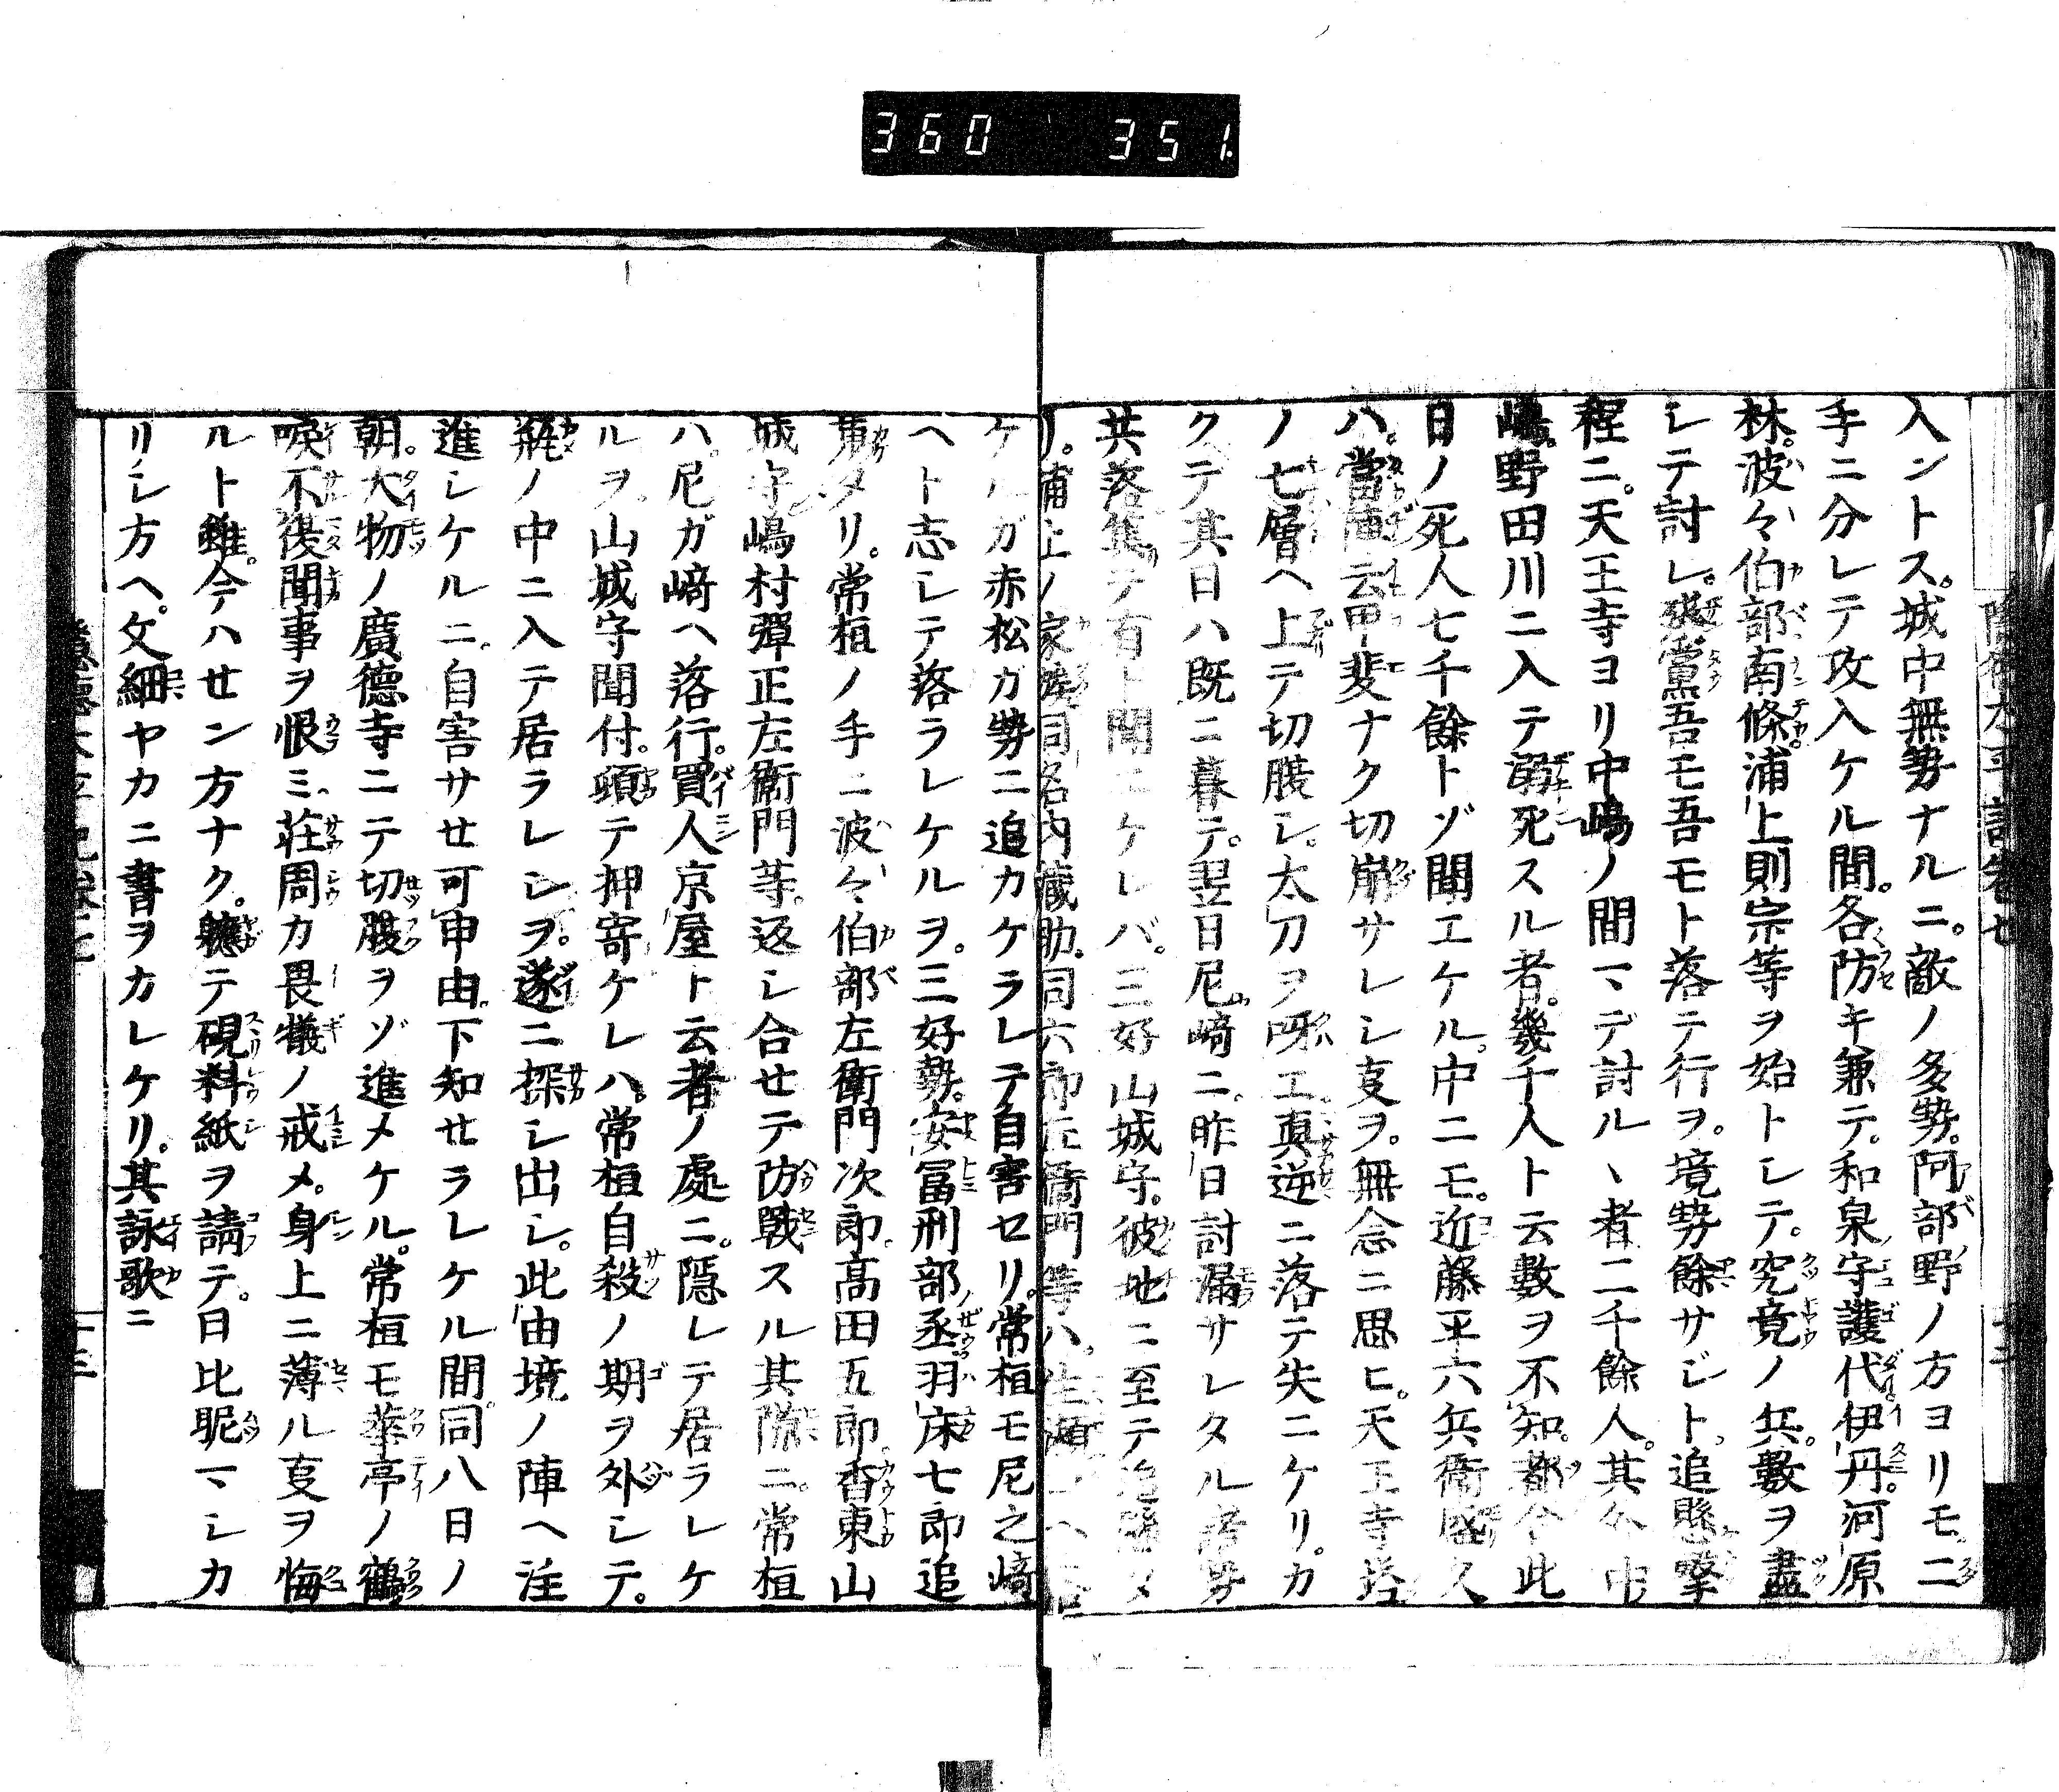 360 351
入ントス。城中無勢ナルニ。敵ノ多勢。阿部野ノ方ヨリモ二
手ニ分レテ攻入ケル間。各防キ兼テ。和泉守護代。伊丹。河原
林。波々伯部。南條。浦上則宗等ヲ始トシテ。究竟ノ兵。數ヲ盡
シテ討レ。殘黨吾モ吾モト落テ行ヲ。境勢餘サジト。追懸撃
程ニ。天王寺ヨリ中嶋ノ間マデ討ルヽ者二千餘人。其外中
嶋。野田川ニ入テ溺死スル者。幾千人ト云數ヲ不知。都合此
日ノ死人七千餘トゾ聞エケル。中ニモ。近藤平六兵衞盛久
ハ。當陣云甲斐ナク切崩サレシ叓ヲ。無念ニ思ヒ。天王寺塔
ノ七層ヘ上テ切腹シ。太刀ヲ呀エ真逆ニ落テ失ニケリ。カ
クテ其日ハ既ニ暮テ。翌日尼崎ニ。昨日討漏サレタル者勢
共落集テ有ト聞エケレバ。三好山城守。彼地ニ至テ追
リ。浦上ノ家 同名内藏助。同六郎左衞門等ハ。生 ヘ落
ケルガ赤松ガ勢ニ追カケラレテ自害セリ。常桓モ尼之崎
ヘト志シテ落ラレケルヲ。三好勢。安冨刑部丞羽床七郎追
カケタリ。常桓ノ手ニ波々伯部左衞門次郎。高田五郎。香東山
城守嶋村彈正左衞門等。返シ合セテ防戰スル其隙ニ。常桓
ハ。尼ガ﨑ヘ落行。買人京屋ト云者ノ處ニ。隱レテ居ラレケ
ルヲ。山城守聞付。頓テ押寄ケレハ。常桓自殺ノ期ヲ外シテ。
瓶ノ中ニ入テ居ラレシヲ。遂ニ探シ出シ。此由境ノ陣ヘ注
進シケルニ。自害サセ可申由。下知セラレケル間。同八日ノ
朝。大物ノ廣德寺ニテ切腹ヲゾ進メケル。常桓モ華亭ノ鶴
唳不復聞事ヲ恨ミ。荘周カ畏犧ノ戒メ。身上ニ薄ル叓ヲ悔
ルト雖。今ハせン方ナク。軈テ硯料紙ヲ請テ。日比昵マシカ
リシ方ヘ。文細ヤカニ書ヲカレケリ。其詠歌ニ